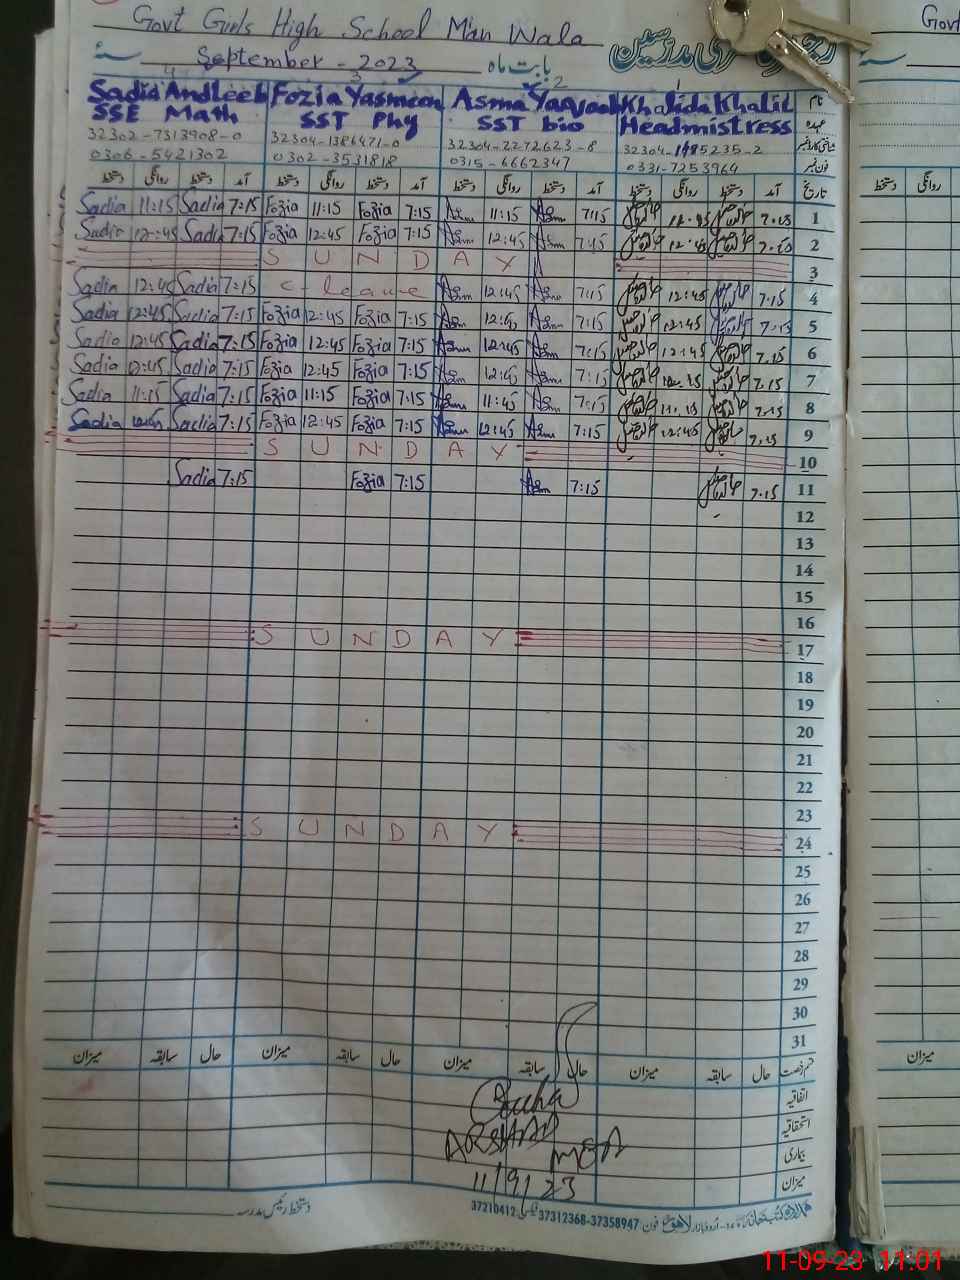 Govt Girls High School Mian Wala
Govt
September - 2023 بابت ماہ
سنہ
4 3 2 1
Sadia Andleeb Fozia Yasmeen Asma Yaqoob Khalida Khalil نام
SSE Math SST Phy SST bio Headmistress عہدہ
32302-7313908-0 32304-1386471-0 32304-2272623-8 شناختی کارڈ نمبر
0306-5421302 0302-3531818 0315-6662347 0331-7253964 فون نمبر
دستخط روانگی دستخط آمد دستخط روانگی دستخط آمد دستخط روانگی دستخط آمد دستخط روانگی دستخط آمد تاریخ
دستخط روانگی
Sadia 11:15 Sadia 7:15 Fozia 11:15 Fozia 7:15 Asm 11:15 Asm 7:15 12:45 7:15 1
Sadia 12:45 Sadia 7:15 Fozia 12:45 Fozia 7:15 Asm 12:45 Asm 7:15 12:45 2
S U N D A Y 3
Sadia 12:45 Sadia 7:15 C-leave Asm 12:45 Asm 7:15 12:45 7:15 4
Sadia 12:45 Sadia 7:15 Fozia 12:45 Fozia 7:15 Asm 12:45 Asm 7:15 12:45 7:15 5
Sadia 12:45 Sadia 7:15 Fozia 12:45 Fozia 7:15 Asm 12:45 Asm 7:15 12:45 7:15 6
Sadia 12:45 Sadia 7:15 Fozia 12:45 Fozia 7:15 Asm 12:45 Asm 7:15 7:15 7
Sadia 11:15 Sadia 7:15 Fozia 11:15 Fozia 7:15 Asm 11:45 Asm 7:15 7:15 8
Sadia Sadia 7:15 Fozia 12:45 Fozia 7:15 Asm 12:45 Asm 7:15 12:45 7:15 9
S U N D A Y 10
Sadia 7:15 Fozia 7:15 Asm 7:15 7:15 11
12
13
14
15
16
S U N D A Y 17
18
19
20
21
22
23
S U N D A Y 24
25
26
27
28
29
30
31
میزان سابقہ حال میزان سابقہ حال میزان سابقہ حال میزان سابقہ حال قسم رخصت
میزان
اتفاقیہ
استحقاقیہ
بیماری
میزان
ARSHAD
MEA
11/9/23
دستخط رئیس مدرسہ
اردو بازار لاہور فون 37312368-37358947 فیکس 37210412
11-09-23 11:01